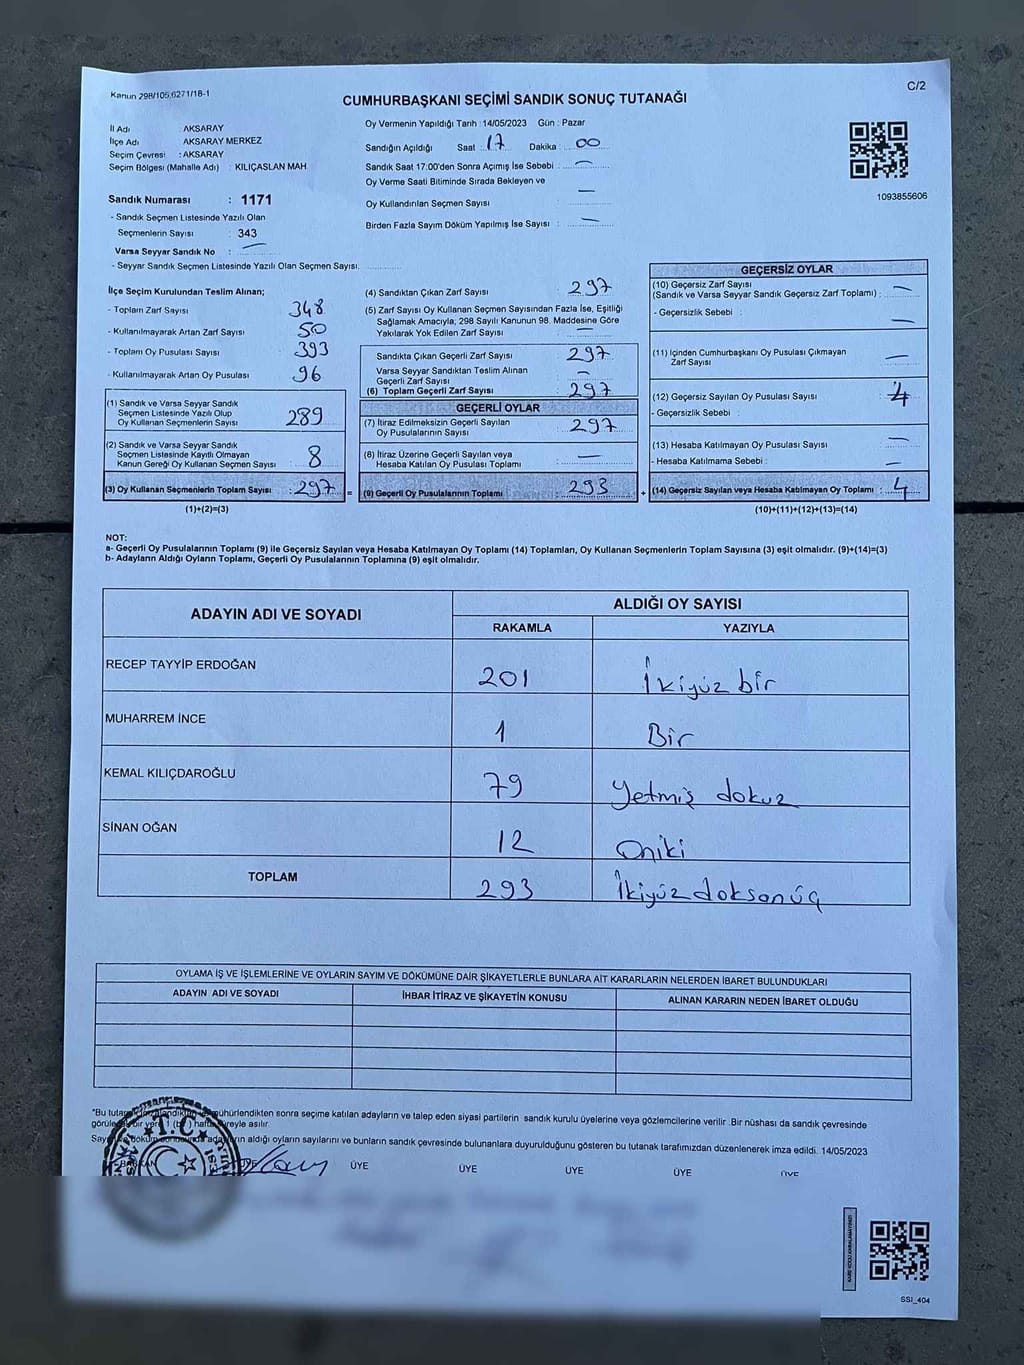 Kanun 298/105,6271/18-1
C/2
CUMHURBAŞKANI SEÇİMİ SANDIK SONUÇ TUTANAĞI
İl Adı : AKSARAY
İlçe Adı : AKSARAY MERKEZ
Seçim Çevresi : AKSARAY
Seçim Bölgesi (Mahalle Adı) : KILIÇASLAN MAH.
Oy Vermenin Yapıldığı Tarih : 14/05/2023 Gün : Pazar
Sandığın Açıldığı Saat : 17 Dakika : 00
Sandık Saat 17:00'den Sonra Açımış İse Sebebi : —
Oy Verme Saati Bitiminde Sırada Bekleyen ve
Oy Kullandırılan Seçmen Sayısı : —
Birden Fazla Sayım Döküm Yapılmış İse Sayısı : —
1093855606
Sandık Numarası : 1171
- Sandık Seçmen Listesinde Yazılı Olan
Seçmenlerin Sayısı : 343
Varsa Seyyar Sandık No : —
- Seyyar Sandık Seçmen Listesinde Yazılı Olan Seçmen Sayısı:
İlçe Seçim Kurulundan Teslim Alınan;
- Toplam Zarf Sayısı : 348
- Kullanılmayarak Artan Zarf Sayısı : 50
- Toplam Oy Pusulası Sayısı : 393
- Kullanılmayarak Artan Oy Pusulası : 96
(1) Sandık ve Varsa Seyyar Sandık
Seçmen Listesinde Yazılı Olup
Oy Kullanan Seçmenlerin Sayısı : 289
(2) Sandık ve Varsa Seyyar Sandık
Seçmen Listesinde Kayıtlı Olmayan
Kanun Gereği Oy Kullanan Seçmen Sayısı : 8
(3) Oy Kullanan Seçmenlerin Toplam Sayısı : 297 =
(1)+(2)=(3)
(4) Sandıktan Çıkan Zarf Sayısı : 297
(5) Zarf Sayısı Oy Kullanan Seçmen Sayısından Fazla İse, Eşitliği
Sağlamak Amacıyla, 298 Sayılı Kanunun 98. Maddesine Göre
Yakılarak Yok Edilen Zarf Sayısı : —
Sandıkta Çıkan Geçerli Zarf Sayısı : 297
Varsa Seyyar Sandıktan Teslim Alınan
Geçerli Zarf Sayısı : —
(6) Toplam Geçerli Zarf Sayısı : 297
GEÇERLİ OYLAR
(7) İtiraz Edilmeksizin Geçerli Sayılan
Oy Pusulalarının Sayısı : 297
(8) İtiraz Üzerine Geçerli Sayılan veya
Hesaba Katılan Oy Pusulası Toplamı : —
(9) Geçerli Oy Pusulalarının Toplamı : 293 +
GEÇERSİZ OYLAR
(10) Geçersiz Zarf Sayısı
(Sandık ve Varsa Seyyar Sandık Geçersiz Zarf Toplamı) : —
- Geçersizlik Sebebi : —
(11) İçinden Cumhurbaşkanı Oy Pusulası Çıkmayan
Zarf Sayısı : —
(12) Geçersiz Sayılan Oy Pusulası Sayısı : 4
- Geçersizlik Sebebi :
(13) Hesaba Katılmayan Oy Pusulası Sayısı : —
- Hesaba Katılmama Sebebi : —
(14) Geçersiz Sayılan veya Hesaba Katılmayan Oy Toplamı : 4
(10)+(11)+(12)+(13)=(14)
NOT:
a- Geçerli Oy Pusulalarının Toplamı (9) ile Geçersiz Sayılan veya Hesaba Katılmayan Oy Toplamı (14) Toplamları, Oy Kullanan Seçmenlerin Toplam Sayısına (3) eşit olmalıdır. (9)+(14)=(3)
b- Adayların Aldığı Oyların Toplamı, Geçerli Oy Pusulalarının Toplamına (9) eşit olmalıdır.
ADAYIN ADI VE SOYADI ALDIĞI OY SAYISI
RAKAMLA YAZIYLA
RECEP TAYYİP ERDOĞAN 201 İkiyüz bir
MUHARREM İNCE 1 Bir
KEMAL KILIÇDAROĞLU 79 Yetmiş dokuz
SİNAN OĞAN 12 Oniki
TOPLAM 293 İkiyüzdoksanüç
OYLAMA İŞ VE İŞLEMLERİNE VE OYLARIN SAYIM VE DÖKÜMÜNE DAİR ŞİKAYETLERLE BUNLARA AİT KARARLARIN NELERDEN İBARET BULUNDUKLARI
ADAYIN ADI VE SOYADI İHBAR İTİRAZ VE ŞİKAYETİN KONUSU ALINAN KARARIN NEDEN İBARET OLDUĞU
*Bu mühürlendikten sonra seçime katılan adayların ve talep eden siyasi partilerin sandık kurulu üyelerine veya gözlemcilerine verilir. Bir nüshası da sandık çevresinde
bir yere 1 hafta süreyle asılır.
aldığı oyların sayılarını ve bunların sandık çevresinde bulunanlara duyurulduğunu gösteren bu tutanak tarafımızdan düzenlenerek imza edildi. 14/05/2023
BAŞKAN ÜYE ÜYE ÜYE ÜYE ÜYE ÜYE
T.C.
SSI_404